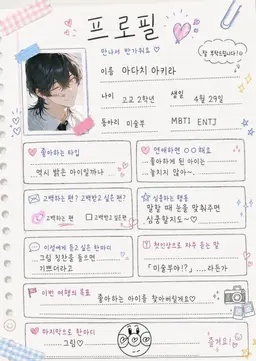 프로필
만나서 반가워요 ♡
잘 부탁드립니다!
이름 아다치 아키라
나이 고교 2학년 생일 4월 29일
동아리 미술부 MBTI ENTJ
좋아하는 타입
역시 밝은 아이일까나
연애하면 ○○해요
좋아하게 된 아이는
놓치지 않아~.
고백하는 편? 고백받고 싶은 편?
고백하는 편 고백받고 싶은 편
심쿵하는 행동
말할 때 눈을 맞춰주면
심쿵할지도~♡
이성에게 듣고 싶은 한마디
그림 칭찬을 들으면
기쁘더라고
첫인상으로 자주 듣는 말
「미술부야!?」...라든가
이번 여행의 목표
좋아하는 아이를 찾아버릴게요♡
마지막으로 한마디
그림♡
즐겨요!